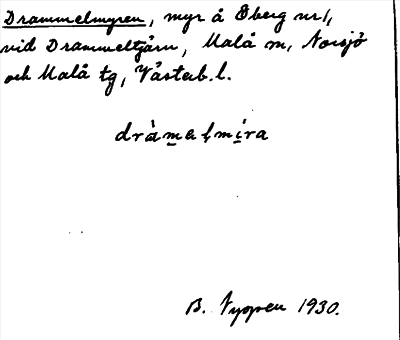 Drammelmyren, myr å Öberg nr 1,
vid Drammeltjärn, Malå m, Norsjö
och Malå tg, Västerb. l.
dràm̲eḷmí̲ra
B. Nyqren 1930.